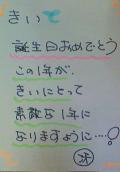 きいて
誕生日おめでとう
この1年が、
きいにとって
素敵な1年に
なりますように…!